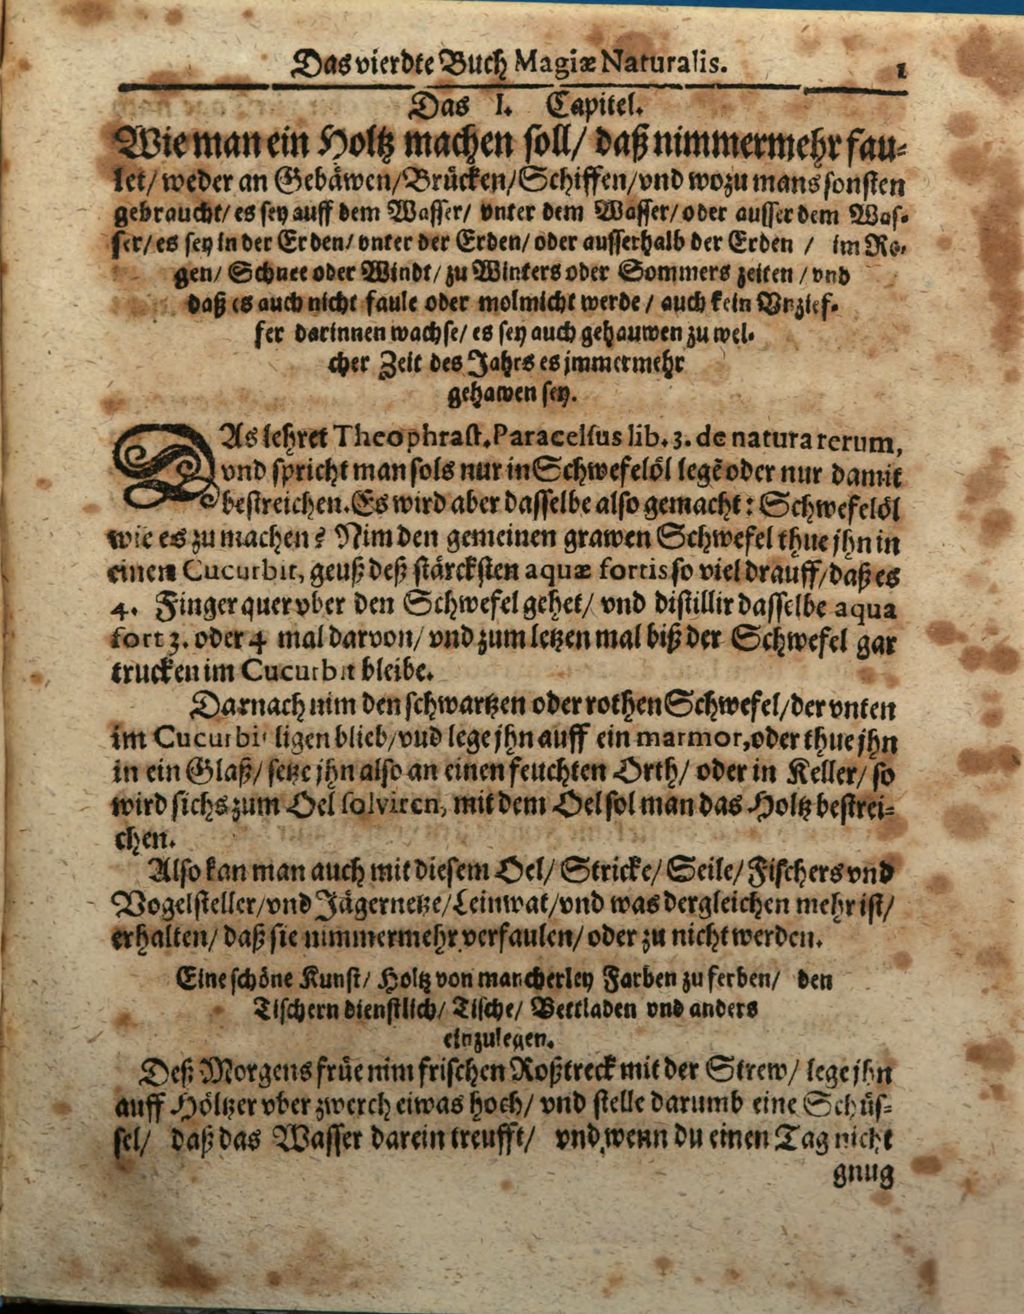 Das vierdte Buch Magiæ Naturalis. 1
Das I. Capitel.
Wie man ein Holtz machen soll/ daß nimmermehr fau-
let/ weder an Gebäwen/Brücken/Schiffen/vnd wozu mans sonsten
gebraucht/ es sey auff dem Wasser/ vnter dem Wasser/ oder ausser dem Was-
ser/ es sey in der Erden/ vnter der Erden/ oder ausserhalb der Erden / im Re-
gen/ Schnee oder Windt/ zu Winters oder Sommers zeiten / vnd
daß es auch nicht faule oder molmicht werde / auch kein Vnzief-
fer darinnen wachse/ es sey auch gehauwen zu wel-
cher Zeit des Jahrs es jmmermehr
gehawen sey.
DAs lehret Theophrast. Paracelsus lib. 3. de natura rerum,
vnd spricht man sols nur in Schwefelöl legē oder nur damit
bestreichen. Es wird aber dasselbe also gemacht: Schwefelöl
wie es zu machen? Nim den gemeinen grawen Schwefel thue jhn in
einen Cucurbit, geuß deß stärcksten aquæ fortis so viel drauff/ daß es
4. Finger quer vber den Schwefel gehet/ vnd distillir dasselbe aqua
fort 3. oder 4 mal darvon/ vnd zum letzen mal biß der Schwefel gar
trucken im Cucurbit bleibe.
Darnach nim den schwartzen oder rothen Schwefel/ der vnten
im Cucurbit ligen blieb/ vnd lege jhn auff ein marmor, oder thue jhn
in ein Glaß/ setze jhn also an einen feuchten Orth/ oder in Keller/ so
wird sichs zum Oel solviren, mit dem Oel sol man das Holtz bestrei-
chen.
Also kan man auch mit diesem Oel/ Stricke/ Seile/ Fischers vnd
Vogelsteller/ vnd Jägernetze/ Leinwat/ vnd was dergleichen mehr ist/
erhalten/ daß sie nimmermehr verfaulen/ oder zu nicht werden.
Eine schöne Kunst/ Holtz von mancherley Farben zu ferben/ den
Tischern dienstlich/ Tische/ Bettladen vnd anders
einzulegen.
Deß Morgens früe nim frischen Roßtreck mit der Strew/ lege jhn
auff Höltzer vber zwerch etwas hoch/ vnd stelle darumb eine Schüs-
sel/ daß das Wasser darein treufft/ vnd, wenn du einen Tag nicht
gnug